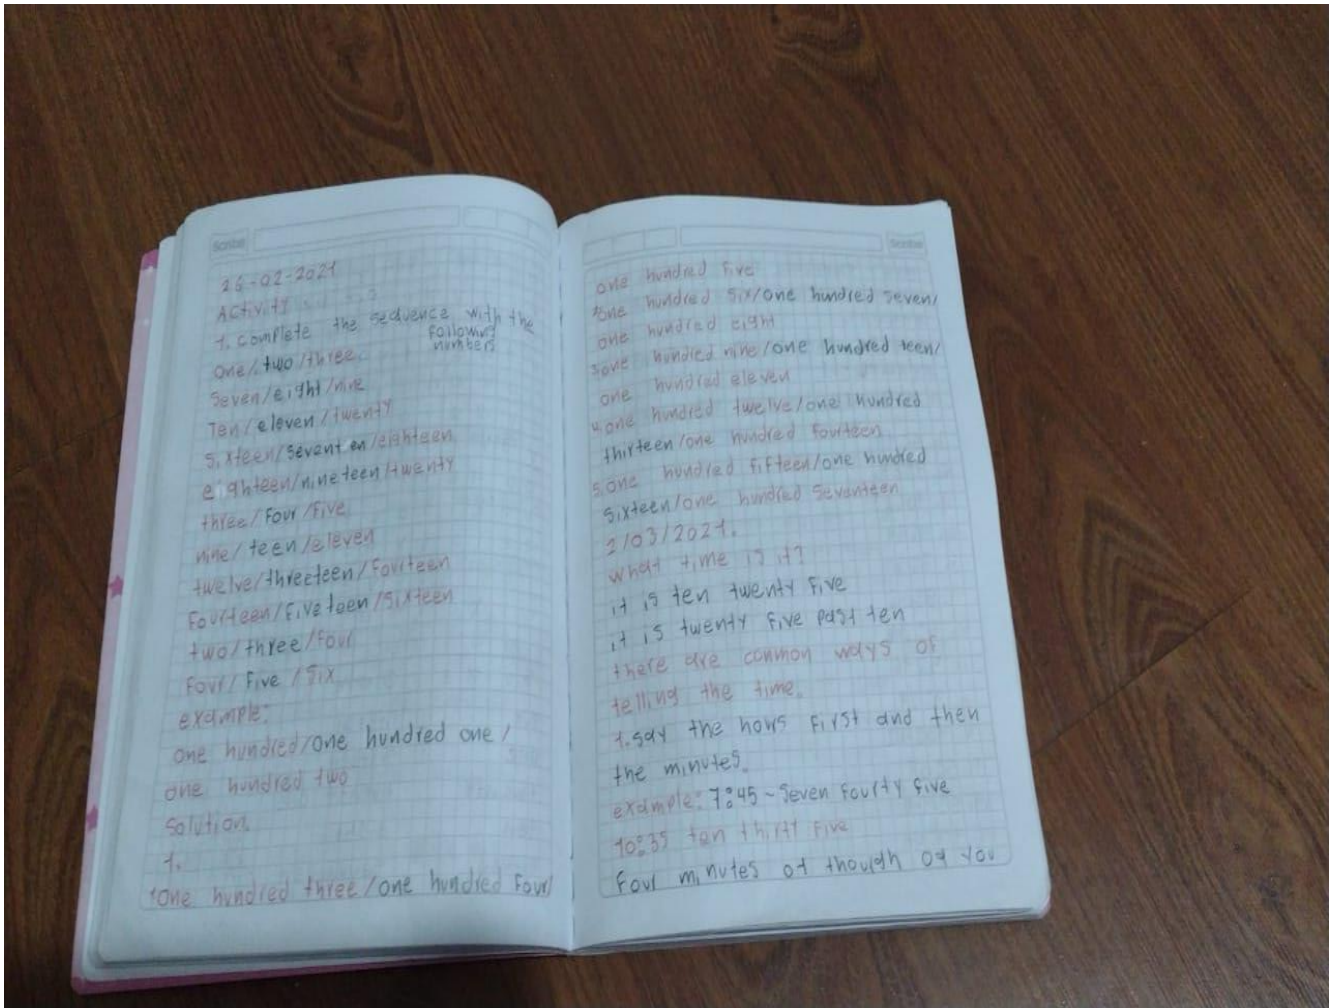 Scribe
26-02-2021
Activity
1. complete the sequence with the
following
numbers
one/two/three
seven/eight/nine
Ten/eleven/twenty
sixteen/seventeen/eighteen
eighteen/nineteen/twenty
three/four/five
nine/teen/eleven
twelve/threeteen/fourteen
fourteen/fiveteen/sixteen
two/three/four
Four/Five/six
example:
one hundred/one hundred one/
one hundred two
Solution.
1.
1one hundred three/one hundred four/
Scribe
one hundred five
one hundred six/one hundred seven/
one hundred eight
3.one hundred nine/one hundred teen/
one hundred eleven
4.one hundred twelve/one hundred
thirteen/one hundred fourteen
5.one hundred fifteen/one hundred
sixteen/one hundred seventeen
2/03/2021.
what time is it?
it is ten twenty five
it is twenty five past ten
there are common ways of
telling the time.
1.say the hows first and then
the minutes.
example: 7:45 - seven fourty five
10:35 ten thirty five
Four minutes of though of you